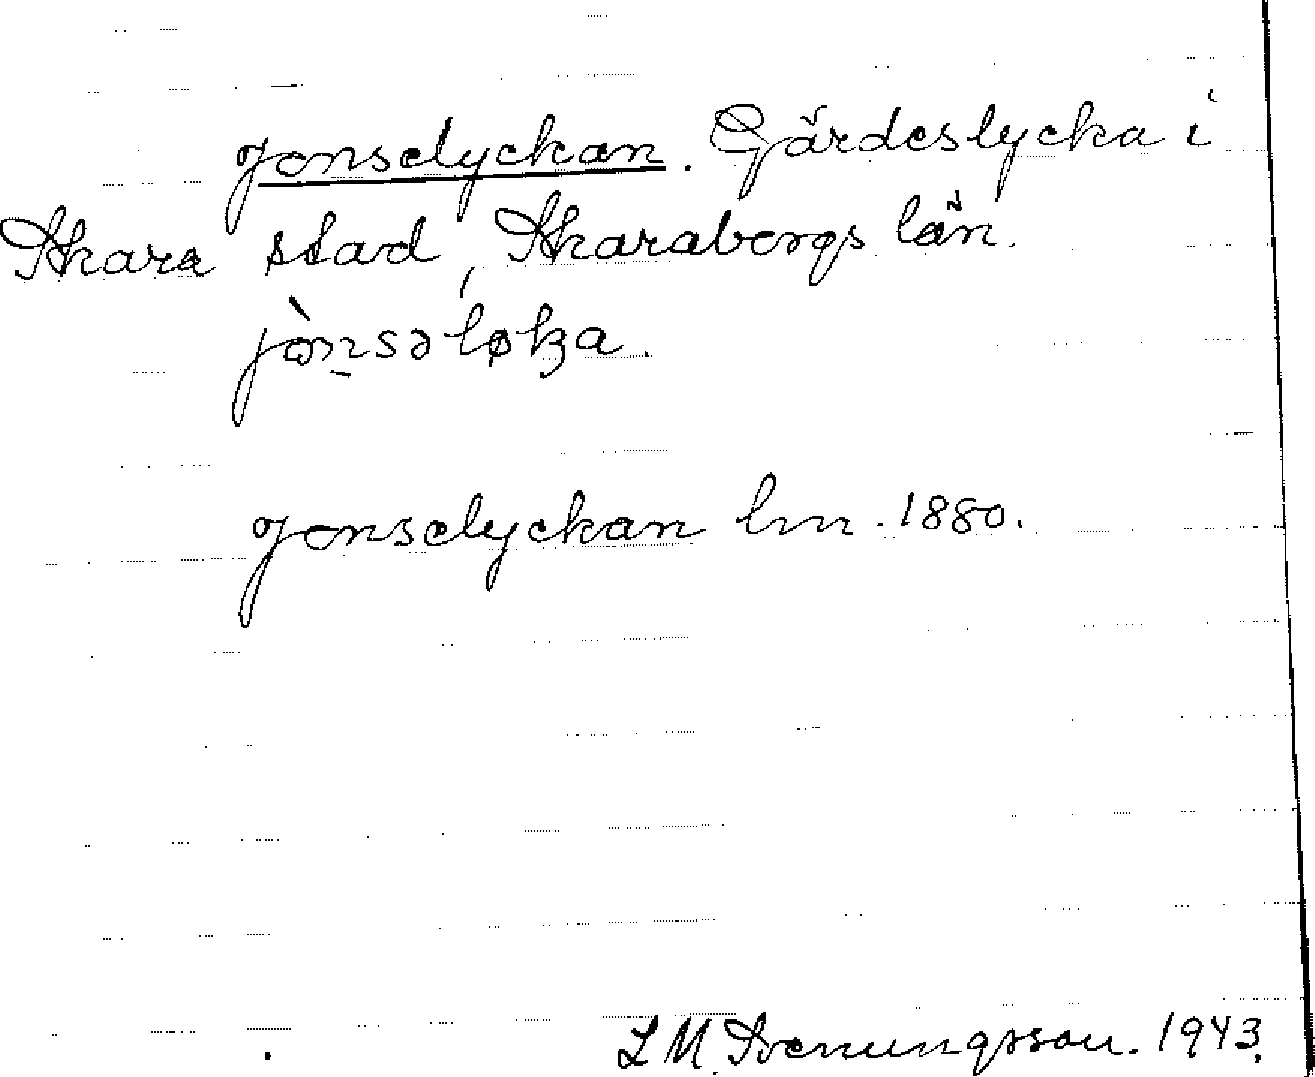 Jonselyckan. Gärdeslycka i
Skara stad, Skarabergs län.
jònsəløka.
Jonselyckan lm. 1880.
L M. Svenungsson. 1943.